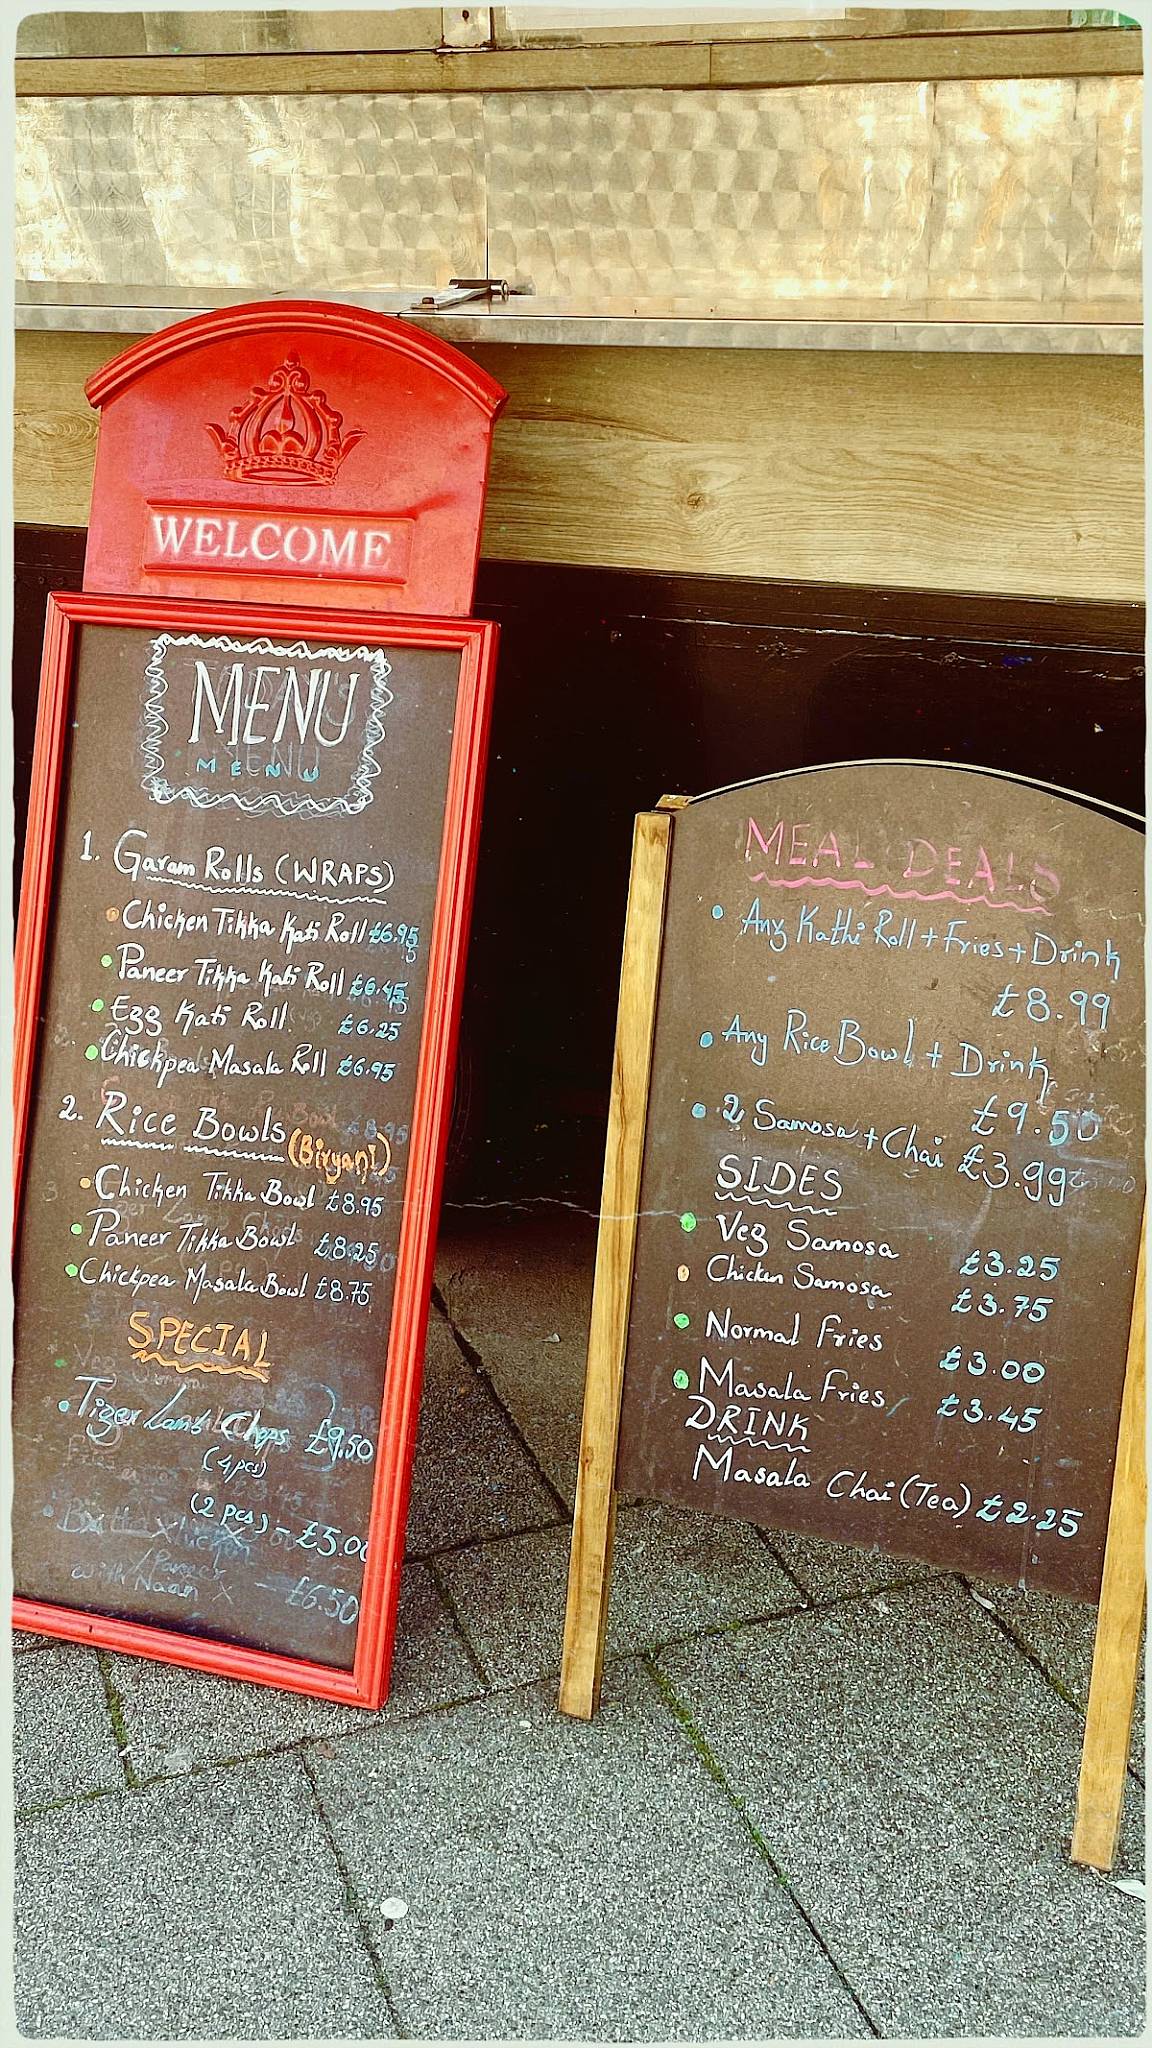 WELCOME
MENU
MENU
1. Garam Rolls (WRAPS)
Chicken Tikka Kati Roll £6.95
Paneer Tikka Kati Roll £6.45
Egg Kati Roll £6.25
Chickpea Masala Roll £6.95
2. Rice Bowls (Biryani)
Chicken Tikka Bowl £8.95
Paneer Tikka Bowl £8.25
Chickpea Masala Bowl £8.75
SPECIAL
Tiger Lamb Chops £9.50
(4pcs)
(2 pcs) - £5.00
with Naan £6.50
MEAL DEALS
Any Kathi Roll + Fries + Drink
£8.99
Any Rice Bowl + Drink
£9.50
2 Samosa + Chai £3.99
SIDES
Veg Samosa £3.25
Chicken Samosa £3.75
Normal Fries £3.00
Masala Fries £3.45
DRINK
Masala Chai (Tea) £2.25